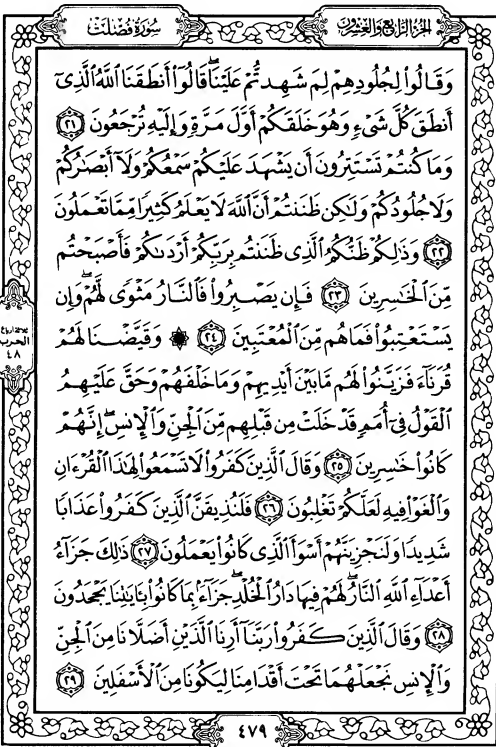 الجزء الرابع والعشرون
سورة فصلت
وَقَالُوا۟ لِجُلُودِهِمْ لِمَ شَهِدتُّمْ عَلَيْنَا ۖ قَالُوٓا۟ أَنطَقَنَا ٱللَّهُ ٱلَّذِىٓ
أَنطَقَ كُلَّ شَىْءٍ وَهُوَ خَلَقَكُمْ أَوَّلَ مَرَّةٍ وَإِلَيْهِ تُرْجَعُونَ ٢١
وَمَا كُنتُمْ تَسْتَتِرُونَ أَن يَشْهَدَ عَلَيْكُمْ سَمْعُكُمْ وَلَآ أَبْصَٰرُكُمْ
وَلَا جُلُودُكُمْ وَلَٰكِن ظَنَنتُمْ أَنَّ ٱللَّهَ لَا يَعْلَمُ كَثِيرًا مِّمَّا تَعْمَلُونَ
٢٢ وَذَٰلِكُمْ ظَنُّكُمُ ٱلَّذِى ظَنَنتُم بِرَبِّكُمْ أَرْدَىٰكُمْ فَأَصْبَحْتُم
مِّنَ ٱلْخَٰسِرِينَ ٢٣ فَإِن يَصْبِرُوا۟ فَٱلنَّارُ مَثْوًى لَّهُمْ ۖ وَإِن
يَسْتَعْتِبُوا۟ فَمَا هُم مِّنَ ٱلْمُعْتَبِينَ ٢٤ ۞ وَقَيَّضْنَا لَهُمْ
قُرَنَآءَ فَزَيَّنُوا۟ لَهُم مَّا بَيْنَ أَيْدِيهِمْ وَمَا خَلْفَهُمْ وَحَقَّ عَلَيْهِمُ
ٱلْقَوْلُ فِىٓ أُمَمٍ قَدْ خَلَتْ مِن قَبْلِهِم مِّنَ ٱلْجِنِّ وَٱلْإِنسِ ۖ إِنَّهُمْ
كَانُوا۟ خَٰسِرِينَ ٢٥ وَقَالَ ٱلَّذِينَ كَفَرُوا۟ لَا تَسْمَعُوا۟ لِهَٰذَا ٱلْقُرْءَانِ
وَٱلْغَوْا۟ فِيهِ لَعَلَّكُمْ تَغْلِبُونَ ٢٦ فَلَنُذِيقَنَّ ٱلَّذِينَ كَفَرُوا۟ عَذَابًا
شَدِيدًا وَلَنَجْزِيَنَّهُمْ أَسْوَأَ ٱلَّذِى كَانُوا۟ يَعْمَلُونَ ٢٧ ذَٰلِكَ جَزَآءُ
أَعْدَآءِ ٱللَّهِ ٱلنَّارُ ۖ لَهُمْ فِيهَا دَارُ ٱلْخُلْدِ ۖ جَزَآءًۢ بِمَا كَانُوا۟ بِـَٔايَٰتِنَا يَجْحَدُونَ
٢٨ وَقَالَ ٱلَّذِينَ كَفَرُوا۟ رَبَّنَآ أَرِنَا ٱلَّذَيْنِ أَضَلَّانَا مِنَ ٱلْجِنِّ
وَٱلْإِنسِ نَجْعَلْهُمَا تَحْتَ أَقْدَامِنَا لِيَكُونَا مِنَ ٱلْأَسْفَلِينَ ٢٩
ثلاثة أرباع
الحزب
٤٨
٤٧٩